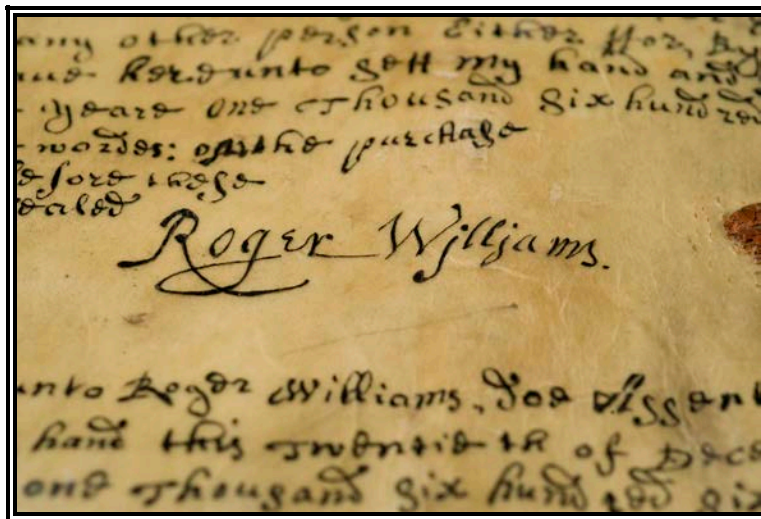 any other person Either ffor, By
hereunto sett my hand and
yeare one Thousand Six hundred
wordes: the purchase
before these
sealed
Roger Williams.
unto Roger Williams, doe Assent
hand this Twentieth of Dece
one Thousand six hundred six